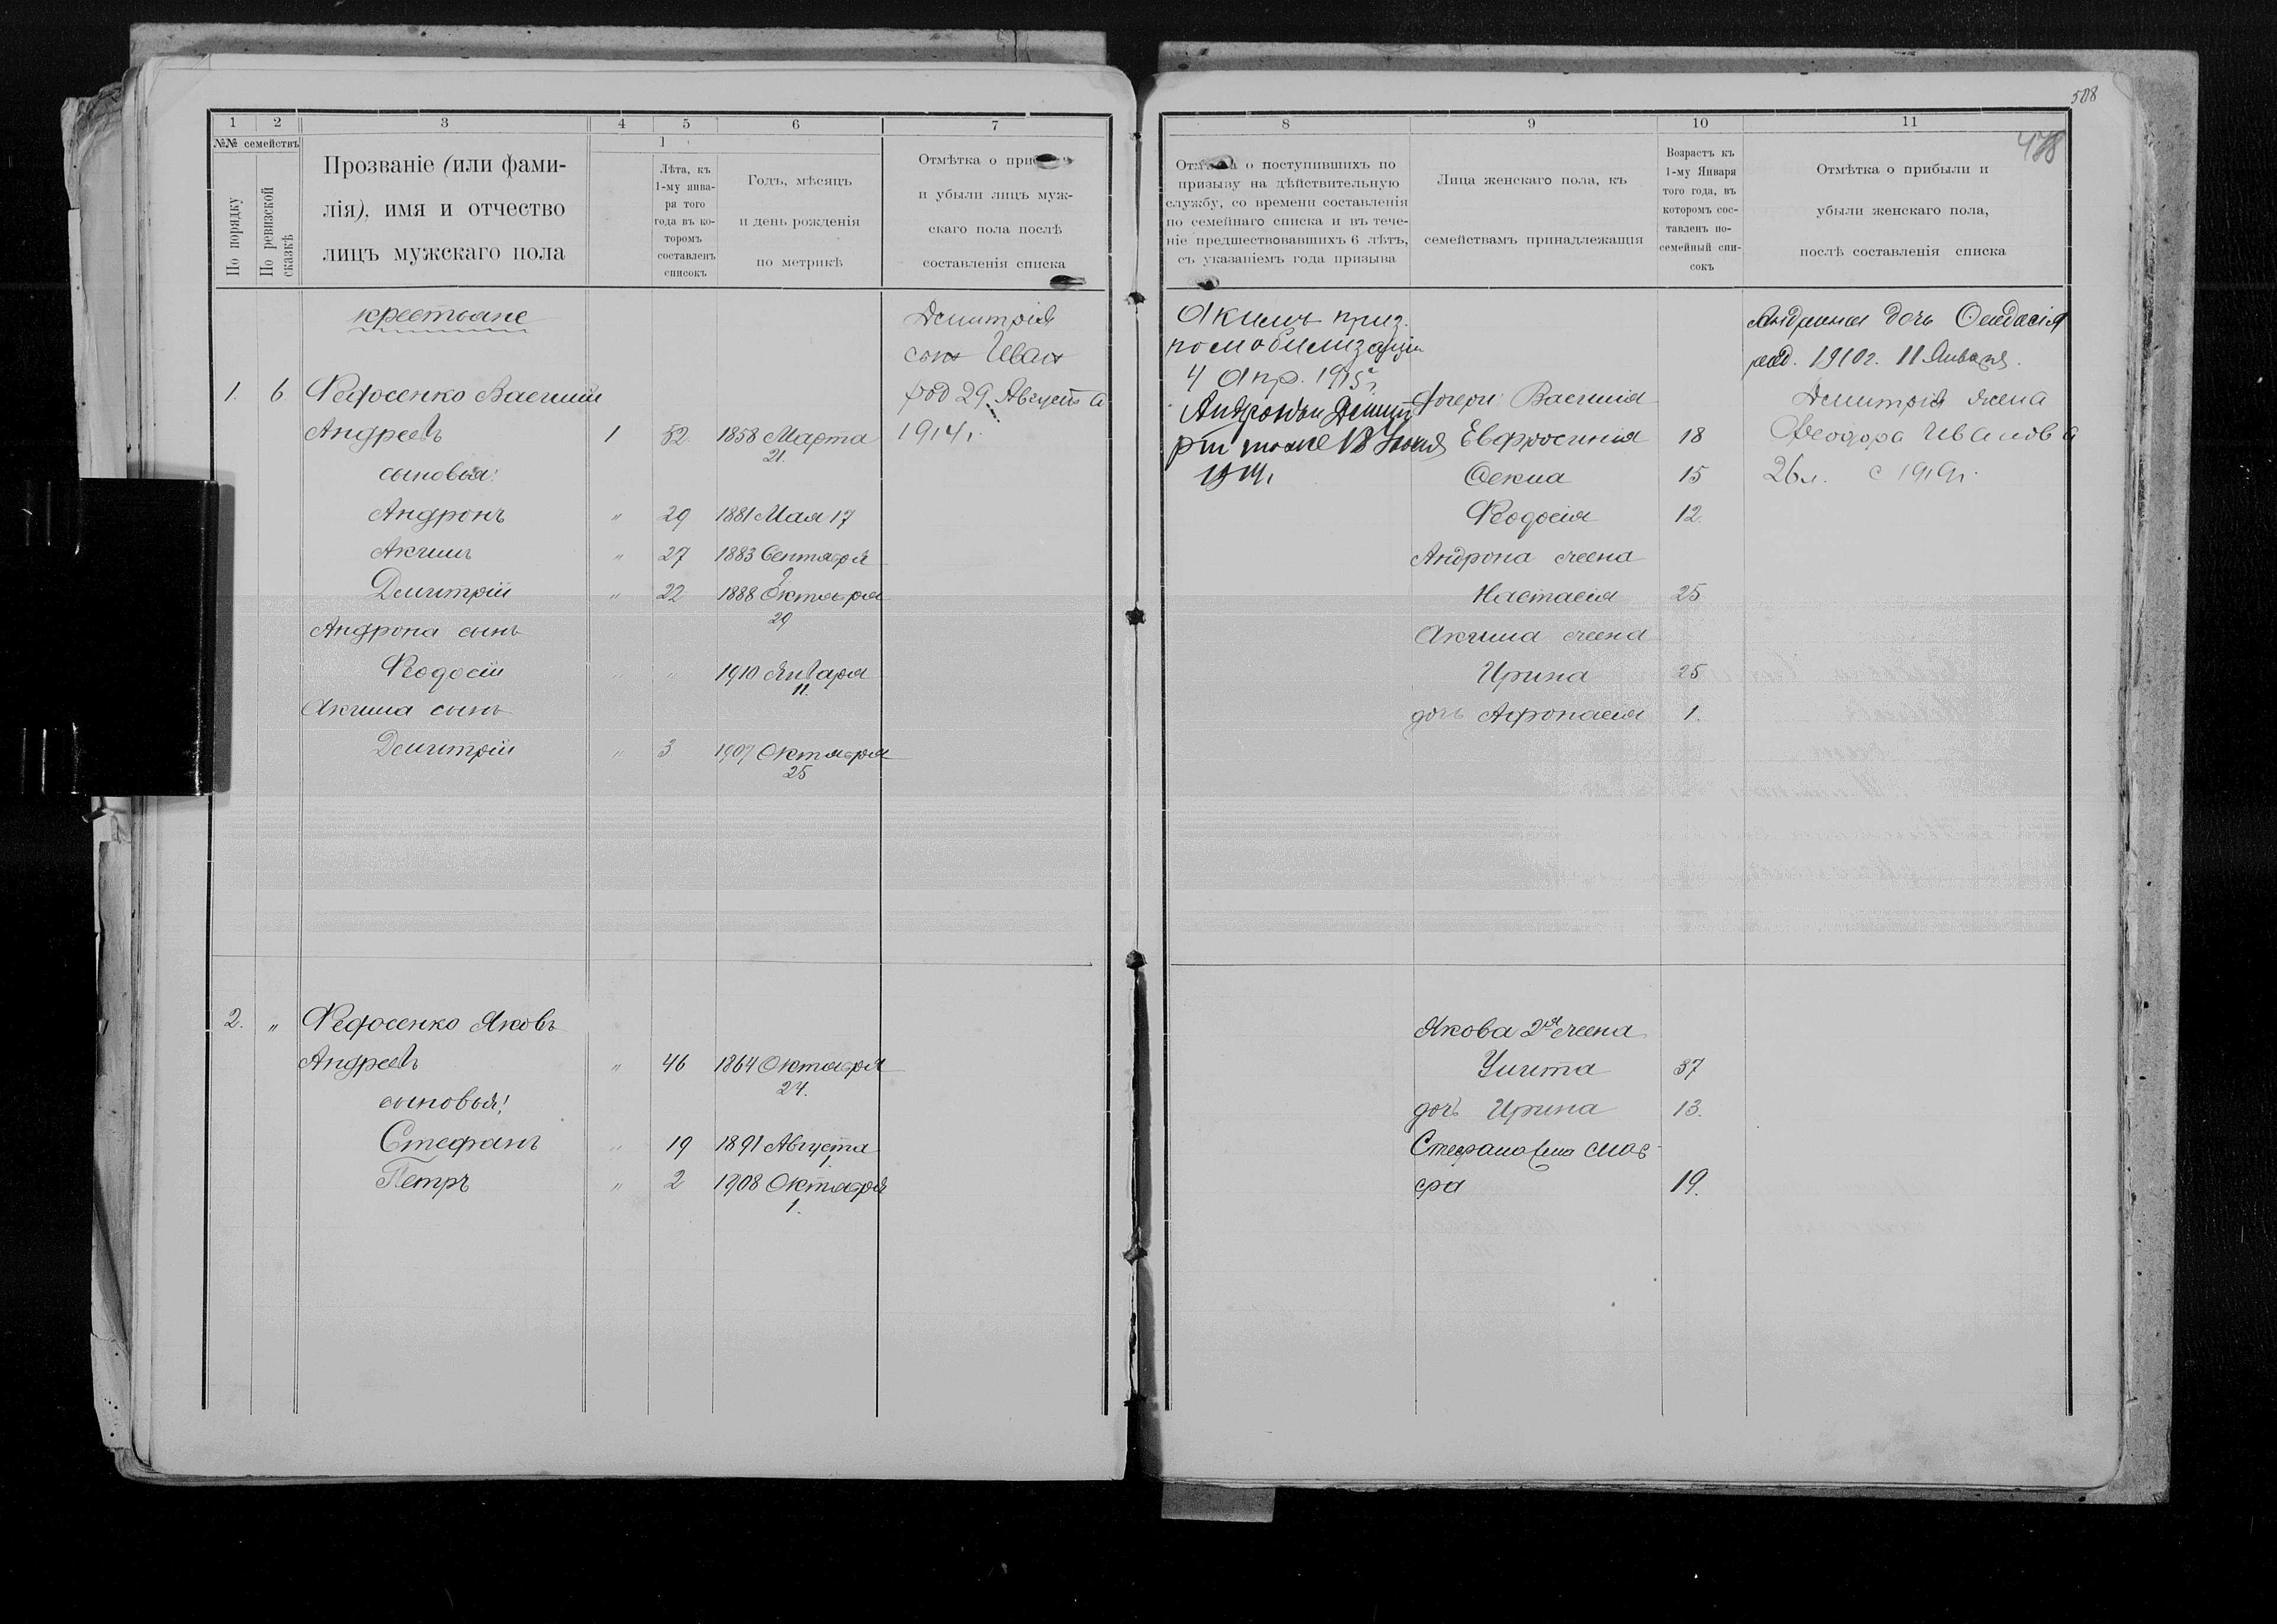 508
478
1 2 3 4 5 6 7
№№ семействъ
По порядку
По ревизской сказкѣ
Прозваніе (или фами-
лія), имя и отчество
лицъ мужскаго пола
1
Лѣта, къ
1-му янва-
ря того
года въ ко-
торомъ
составленъ
списокъ
Годъ, мѣсяцъ
и день рожденія
по метрикѣ
Отмѣтка о
и убыли лицъ муж-
скаго пола послѣ
составленія списка
крестьяне
Дмитрія
сын Иван
род 29 Августа
1914 г.
1. 6 Федосенко Василий
Андреевъ 1 52. 1858 Марта
21.
сыновья:
Андронъ " 29 1881 Мая 17
Акимъ " 27 1883 Сентября
9
Дмитрій " 22 1888 Октября
29
Андрона сынъ
Феодосій " " 1910 Января
11.
Акима сынъ
Дмитрій " 3 1907 Октября
25
2. " Федосенко Яковъ
Андреевъ " 46 1864 Октября
24.
сыновья:
Стефанъ " 19 1891 Августа
1.
Петръ " 2 1908 Октября
1.
8 9 10 11
о поступившихъ по
призыву на дѣйствительную
службу, со времени составленія
по семейнаго списка и въ тече-
ніе предшествовавшихъ 6 лѣтъ,
съ указаніемъ года призыва
Лица женскаго пола, къ
семействамъ принадлежащія
Возрастъ къ
1-му Января
того года, въ
которомъ сос-
тавленъ по-
семейный спи-
сокъ
Отмѣтка о прибыли и
убыли женскаго пола,
послѣ составленія списка
Акимъ приз.
по мобилизации
4 Апр. 1915 г.
тоже 18
дочь
род. 1910 г. 11 Января.
Дмитрія жена
Феодора Иванова
26 л. с
дочери Василія
Евфросинія 18
Фекла 15
Феодосія 12.
Андрона жена
Настасія 25
Акима жена
Ирина 25
дочь Афонасія 1.
Якова 2я жена
Улита 37
дочь Ирина 13.
Стефана жена
19.